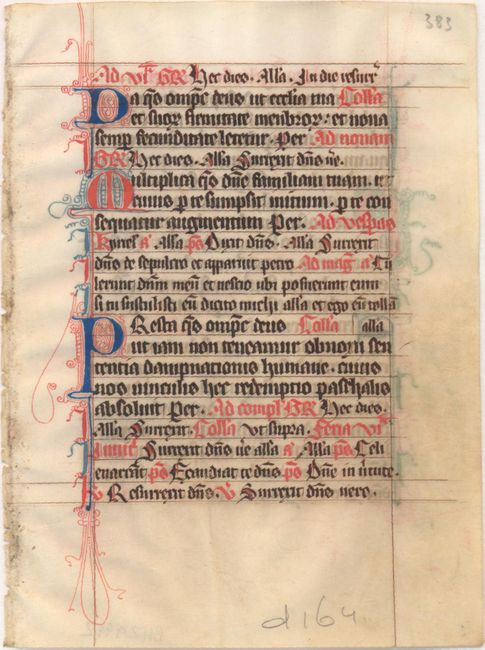 383
Ad vi͂ GR Hec dies. Alla. In die resurr̄
Da q̄s omp̄c deus ut ecclia tua Colla
et suor͂ firmitate membror͂ et noua
semp̄ fecunditate letetur. Per Ad nonam
GR Hec dies. Alla Surrexit dn̄s ūe.
Multiplica q̄s dn̄e familiam tuam. ut
p te sumpsit inicium. p te con
sequatur augmentum Per. Ad vesp̄as
Kyrel a Alla p̄s Dixit dn̄s. Alla Surrexit
dn̄s de sepulcro et apparuit petro Ad maḡ a Tu
lerunt dn̄m meū et nescio ubi posuerunt eum
si tu sustulisti eū dicito michi alla et ego eū tollā
PResta q̄s omp̄c deus Colla alla
ut iam non teneamur obnoxii sen
tentia dampnationis humane. cuius
nos uinculis hec redemptio paschalis
absoluit Per. Ad compl͂ GR Hec dies.
Alla Surrexit. Colla vt supra. Feria vi͂
Inuit Surrexit dn̄s ūe alla a Alla p̄s Celi
enarrāt p̄s Exaudiat te dn̄s p̄s Dn̄e in ūtute.
v Resurrexit dn̄s. v Surrexit dn̄s uero.
d164